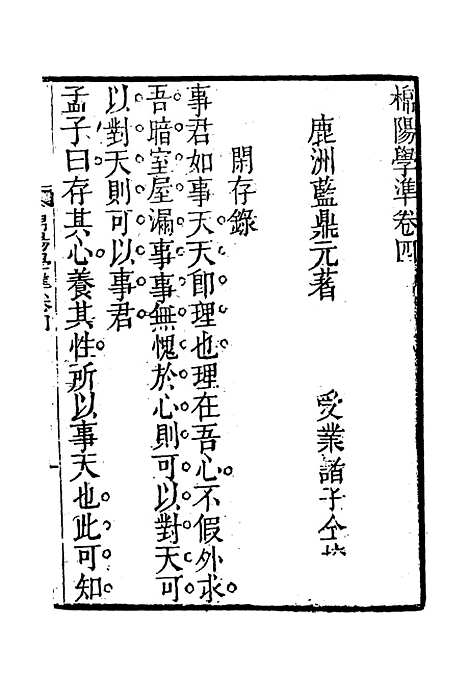 棉陽學準卷四
鹿洲藍鼎元著　受業諸子仝校
閑存錄
事君如事天天即理也理在吾心不假外求
吾暗室屋漏事事無愧於心則可以對天可
以對天則可以事君
孟子曰存其心養其性所以事天也此可知
棉陽學準卷四